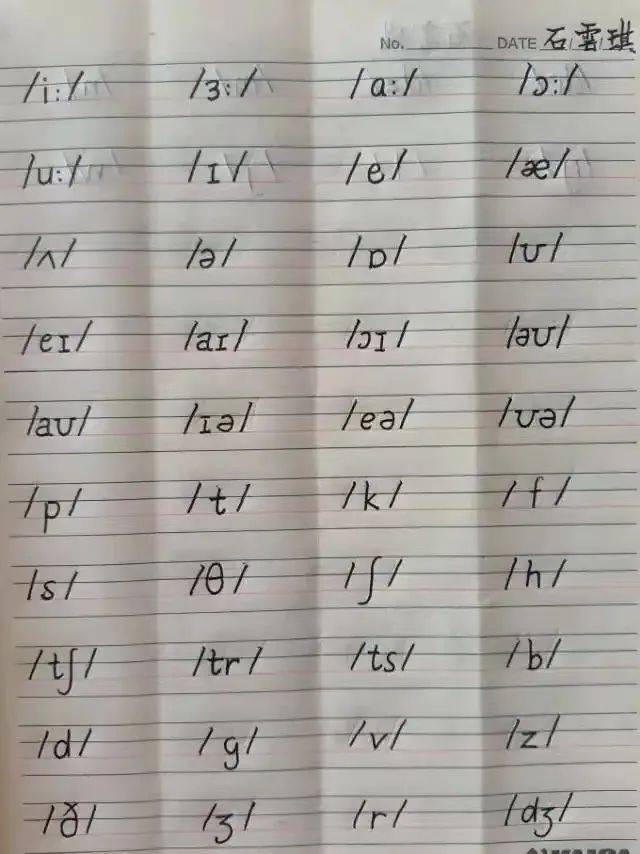 No. DATE 石雲琪
/i:/ /ɜ:/ /ɑ:/ /ɔ:/
/u:/ /ɪ/ /e/ /æ/
/ʌ/ /ə/ /ɒ/ /ʊ/
/eɪ/ /aɪ/ /ɔɪ/ /əʊ/
/aʊ/ /ɪə/ /eə/ /ʊə/
/p/ /t/ /k/ /f/
/s/ /θ/ /ʃ/ /h/
/tʃ/ /tr/ /ts/ /b/
/d/ /g/ /v/ /z/
/ð/ /ʒ/ /r/ /dʒ/